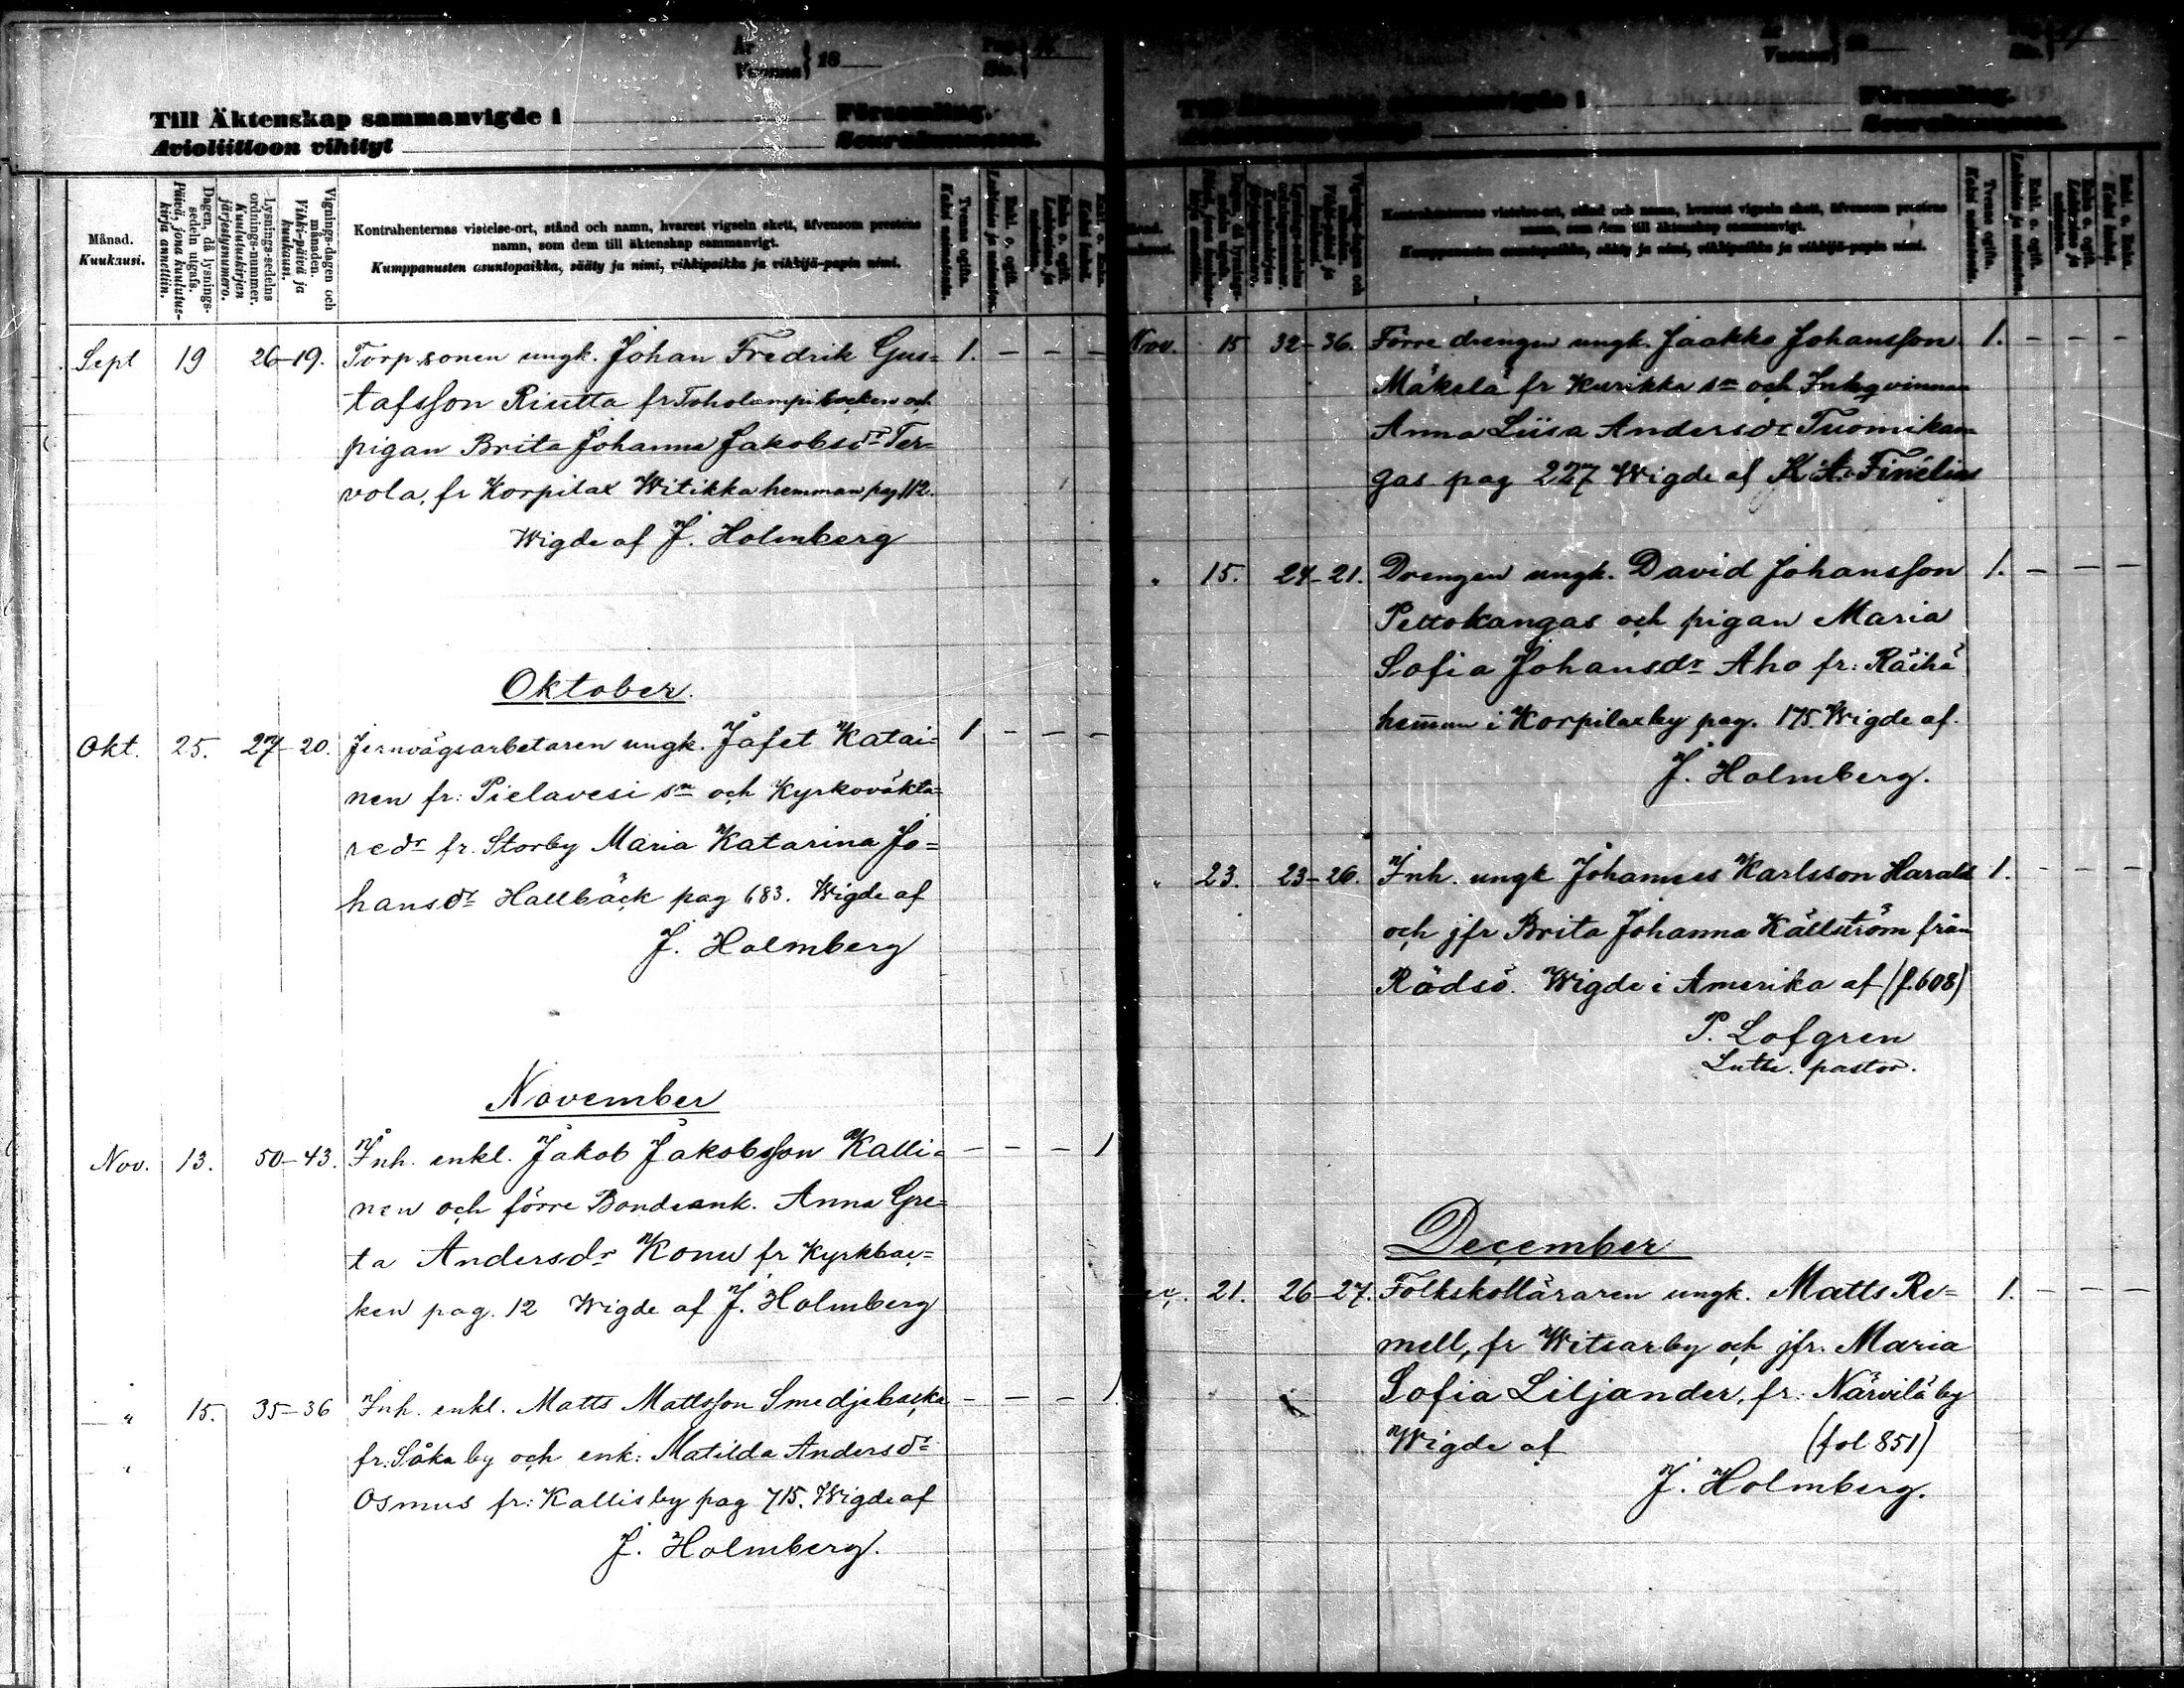 År
Vuonna 18
Till Äktenskap sammanvigde i Församling.
Avioliittoon vihityt Seurakunnassa.
Månad.
Kuukausi.
Dagen, då lysnings-sedeln utgafs.
Päivä, jona kuulutus-kirja annettiin.
Lysnings-sedelns ordnings-nummer.
Kuulutuskirjan järjestysnumero.
Vignings-dagen och månaden.
Vihki-päivä ja kuukausi.
Kontrahenternas vistelse-ort, stånd och namn, hvarest vigseln skett, äfvensom prestens
namn, som dem till äktenskap sammanvigt.
Kumppanusten asuntopaikka, sääty ja nimi, vihkipaikka ja vihkijä-papin nimi.
Tvenne ogifta.
Kaksi naimatonta.
Sept 19 26-19. Torp.sonen ungk. Johan Fredrik Gus= 1. - - -
tafsson Riutta fr Toholampi socken och
pigan Brita Johanna Jakobsdr Ter=
vola, fr Korpilax Witikka hemman pag 112.
Wigde af J. Holmberg
Oktober.
Okt. 25. 27-20. Jernvägsarbetaren ungk. Jafet Katai= 1 - - -
nen fr: Pielavesi sn och Kyrkoväkta=
redr fr. Storby Maria Katarina Jo=
hansdr Hallbäck pag 683. Wigde af
J. Holmberg
November
Nov. 13. 50-43. Inh. enkl. Jakob Jakobsson Kalli= - - - 1
nen och förre Bondeenk. Anna Gre=
ta Andersdr Konu fr Kyrkbac=
ken pag. 12 Wigde af J. Holmberg
" 15. 35-36 Inh. enkl. Matts Mattsson Smedjebacka - - - 1.
fr: Såka by och enk: Matilda Andersdr
Osmus fr: Kallis by pag 715. Wigde af
J. Holmberg.
Kontrahenternas vistelse-ort, stånd och namn, hvarest vigseln skett, äfvensom prestens
namn, som dem till äktenskap sammanvigt.
Kumppanusten asuntopaikka, sääty ja nimi, vihkipaikka ja vihkijä-papin nimi.
Tvenne ogifta.
Kaksi naimatonta.
Nov. 15 32-36. Förre drengen ungk. Jaakko Johansson 1. - - -
Mäkelä fr Kurikka sn och Inhqvinnan
Anna Liisa Andersdr Tuomikan
gas pag 227 Wigde af K A. Finélius
" 15. 24-21. Drengen ungk. David Johansson 1. - - -
Peltokangas och pigan Maria
Sofia Johansdr Aho fr: Räihä
hemman i Korpilax by pag. 175. Wigde af.
J. Holmberg.
" 23. 23-26. Inh. ungk Johannes Karlsson Harald 1. - - -
och jfr Brita Johanna Källström från
Rödsö. Wigde i Amerika af (f.608)
P. Lofgren
Luthe. pastor.
December
21. 26-27. Folkskolläraren ungk. Matts Re= 1. - - -
mell, fr Witsar by och jfr. Maria
Sofia Liljander, fr: Närvilä by
Wigde af (fol 851)
J. Holmberg.